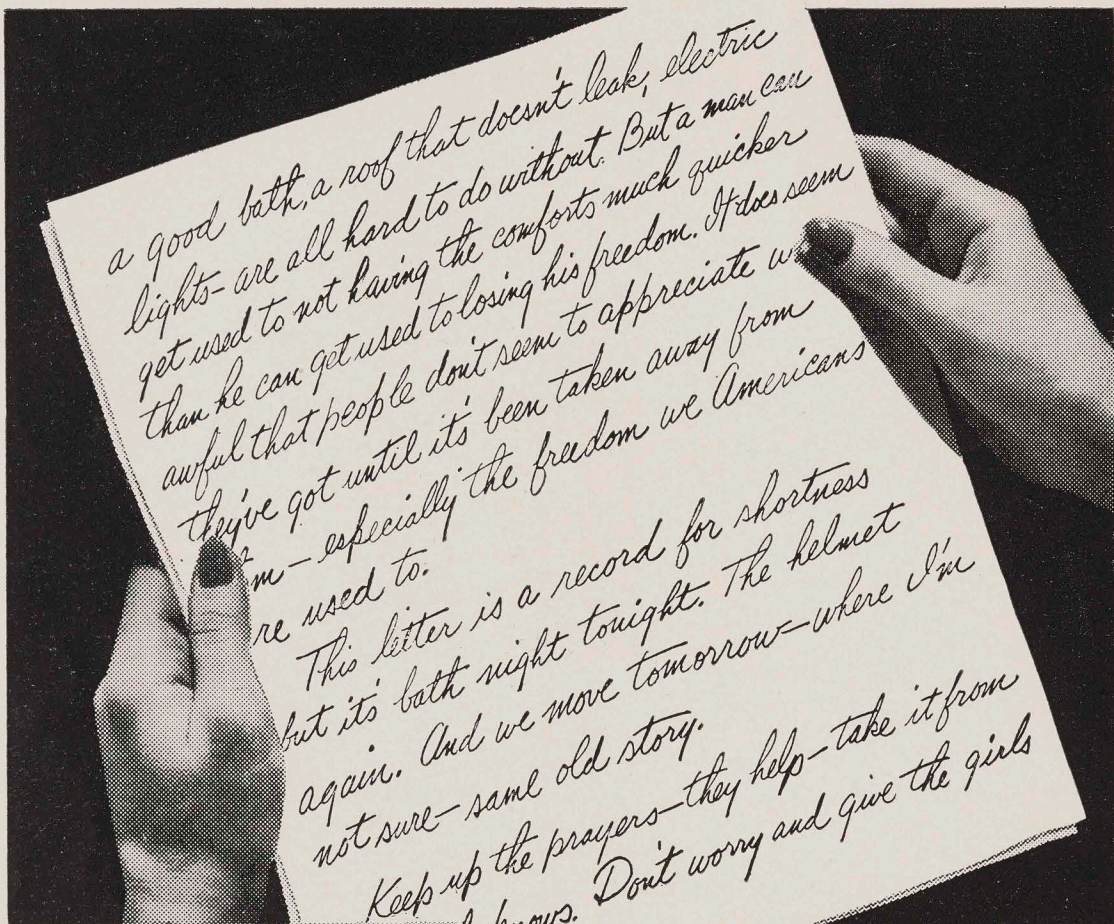 a good bath, a roof that doesn't leak, electric
lights—are all hard to do without. But a man can
get used to not having the comforts much quicker
than he can get used to losing his freedom. It does seem
awful that people don't seem to appreciate
they've got until it's been taken away from
—especially the freedom we Americans
used to.
This letter is a record for shortness
but it's bath night tonight. The helmet
again. And we move tomorrow—where I'm
not sure—same old story.
Keep up the prayers—they help—take it from
knows. Don't worry and give the girls